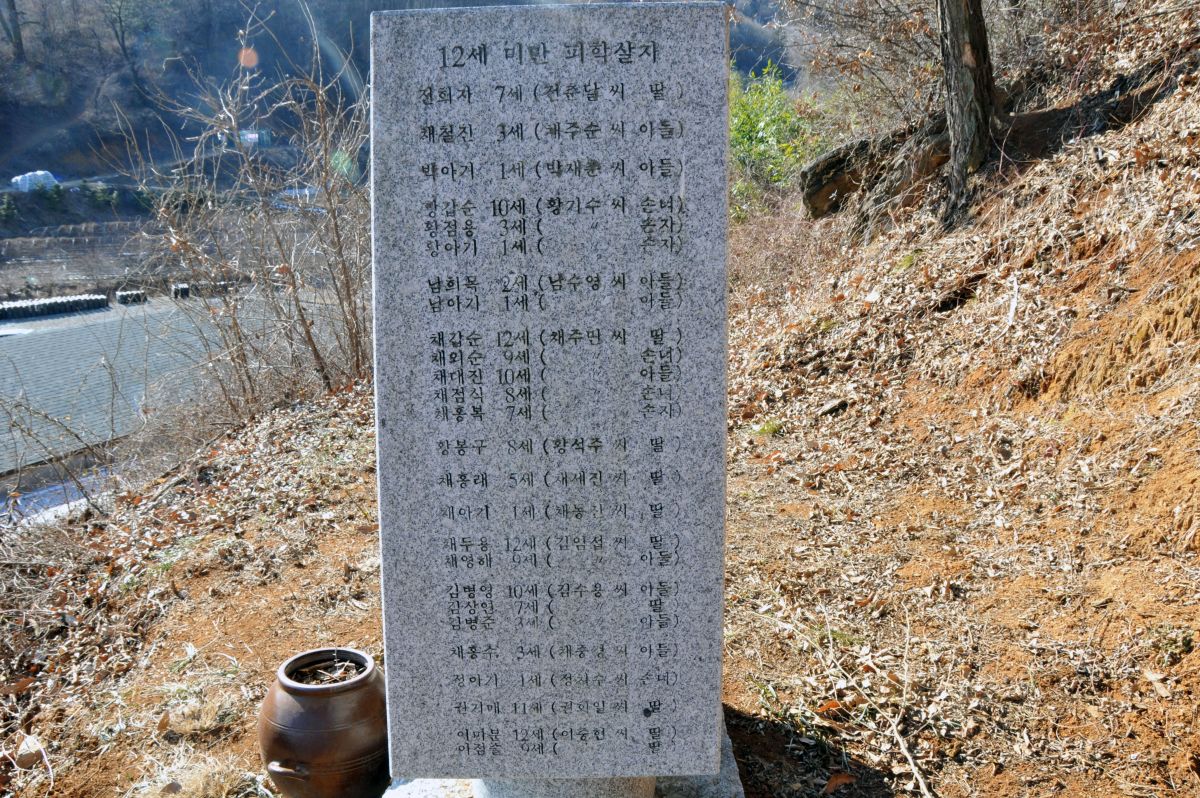 12세 미만 피학살자
전희자 7세 (전춘달 씨 딸)
채철진 3세 (채주순 씨 아들)
박아기 1세 (박재춘 씨 아들)
황갑순 10세 (황기수 씨 손녀)
황점용 3세 ( 〃 손자)
황아기 1세 ( 〃 손자)
남희목 2세 (남수영 씨 아들)
남아기 1세 ( 〃 아들)
채갑순 12세 (채주민 씨 딸)
채외순 9세 ( 〃 손녀)
채대진 10세 ( 〃 아들)
채점식 8세 ( 〃 손녀)
채홍복 7세 ( 〃 손자)
황봉구 8세 (황석주 씨 딸)
채홍래 5세 (채세진 씨 딸)
채아기 1세 (채동진 씨 딸)
채두용 12세 (김임섭 씨 딸)
채영해 9세 ( 〃 아들)
김명영 10세 (김수용 씨 아들)
김상연 7세 ( 〃 딸)
김병준 3세 ( 〃 아들)
채홍주 3세 (씨 아들)
정아기 1세 (씨 손녀)
권기매 11세 (권희일 씨 딸)
12세 (이중헌 씨 딸)
9세 ( 딸)